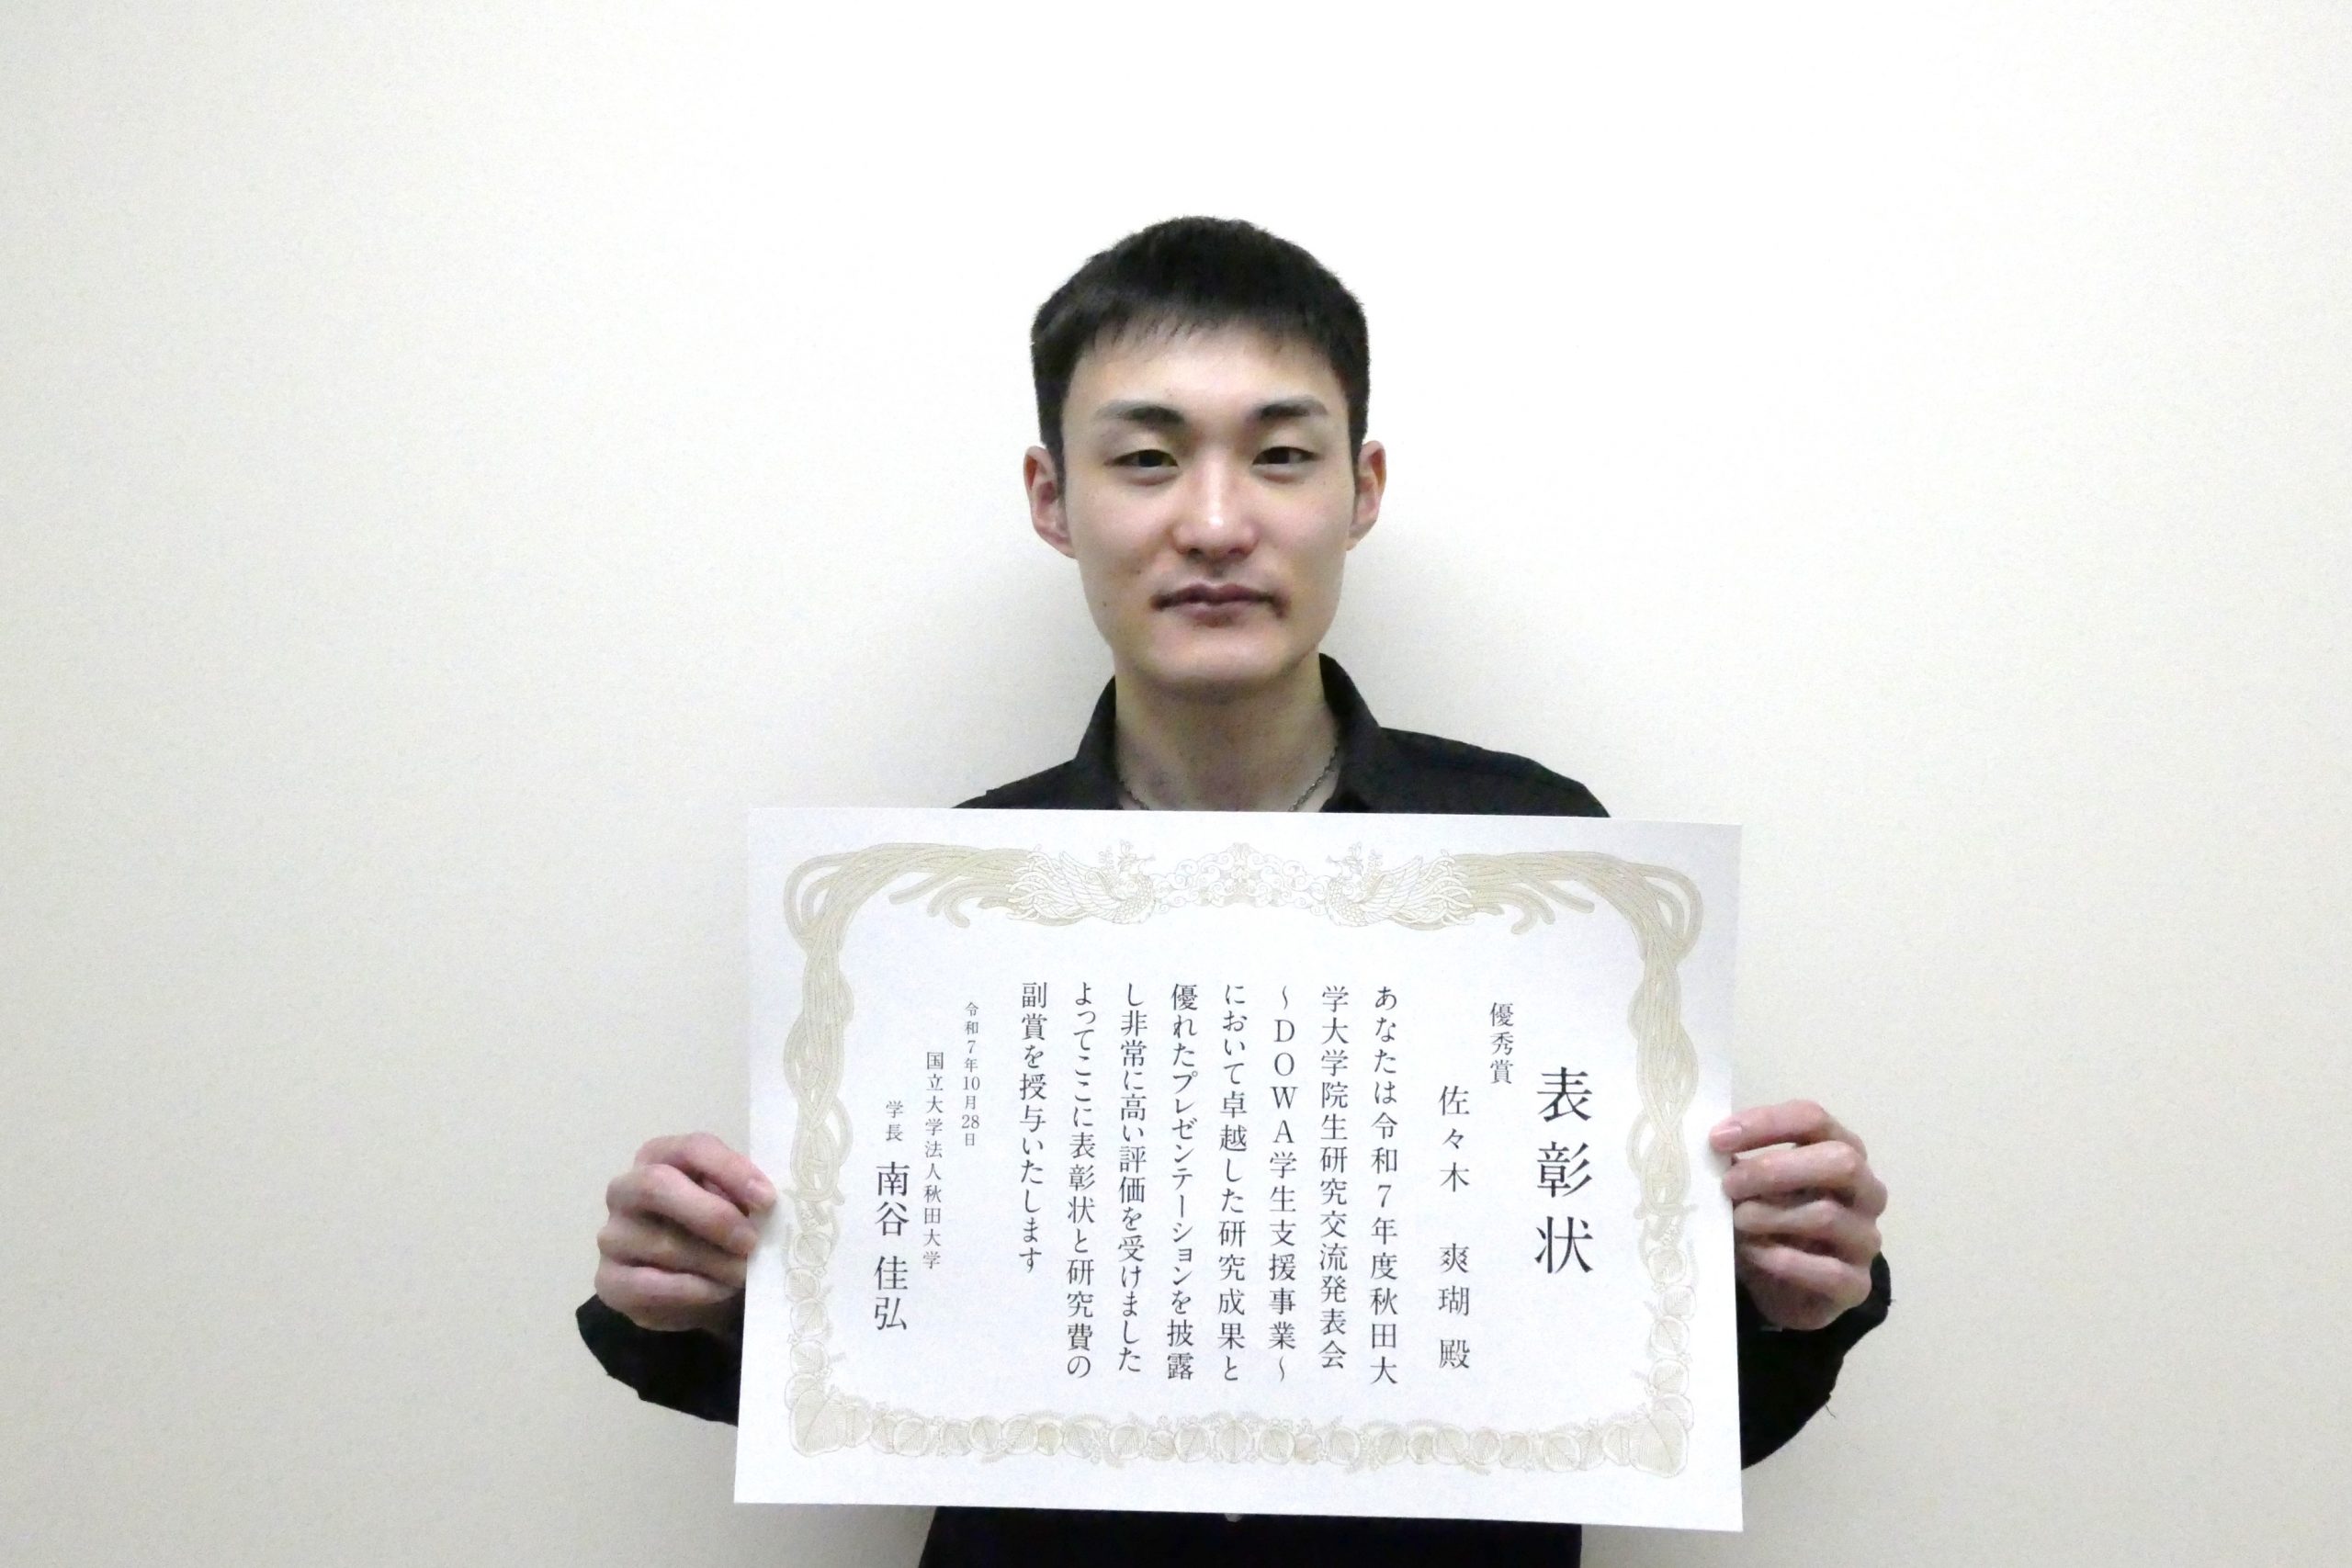 表彰状
優秀賞
佐々木 爽瑚 殿
あなたは令和7年度秋田大
学大学院生研究交流発表会
～DOWA学生支援事業～
において卓越した研究成果と
優れたプレゼンテーションを披露
し非常に高い評価を受けました
よってここに表彰状と研究費の
副賞を授与いたします
令和7年10月28日
国立大学法人秋田大学
学長 南谷 佳弘